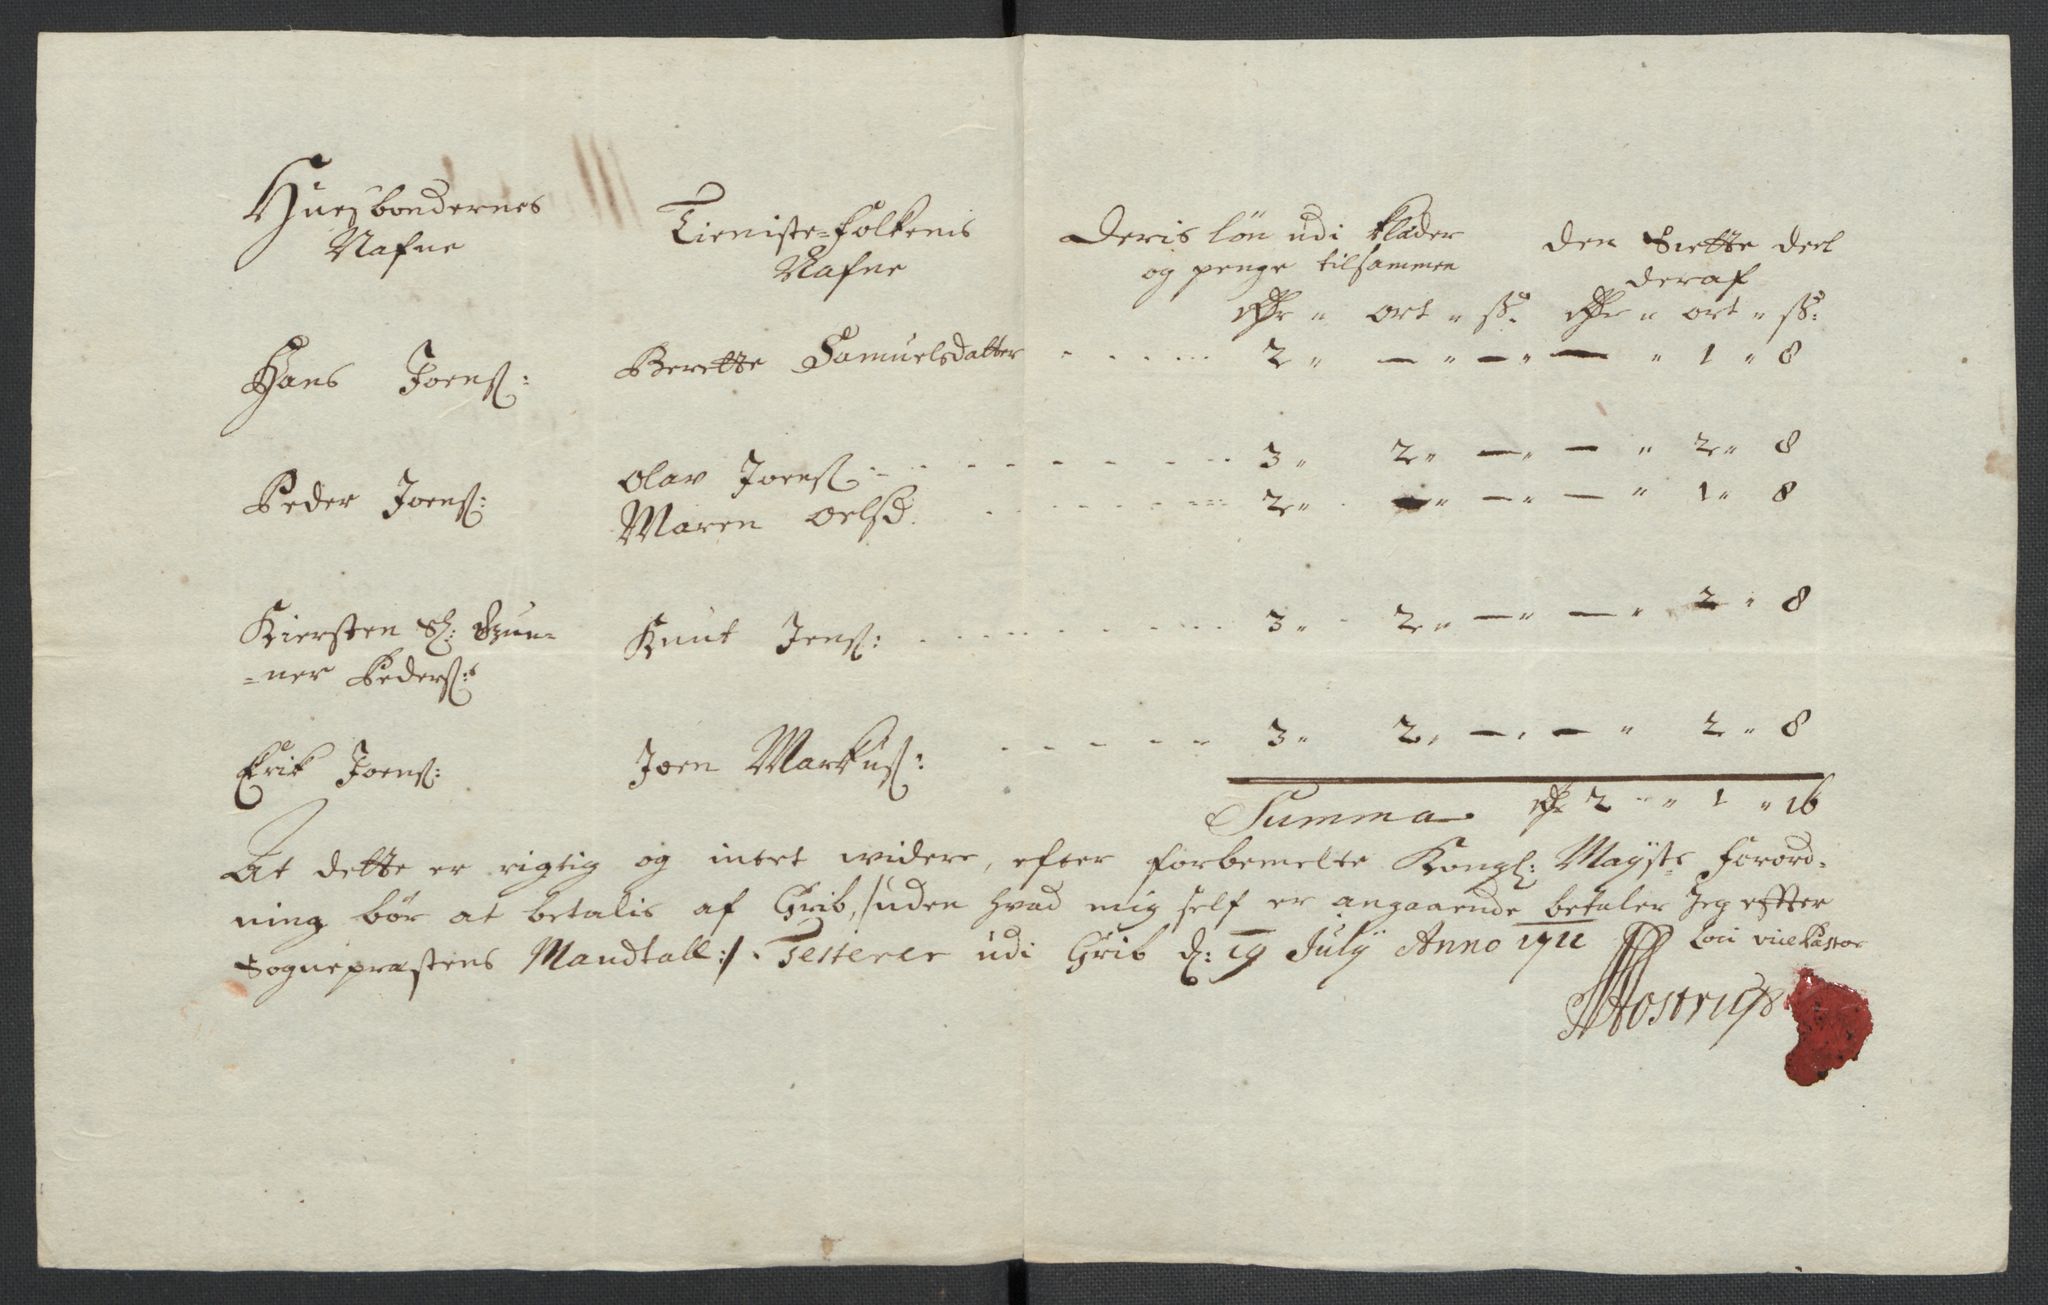 Huusbondernes Nafne
Tieniste-Folkenis Nafne
Deris løn udi klæder og penge tilsammen
den Siette deel deraf
Rdr " ort " ß: Rdr " ort " ß:
Hans Joens: Berette Samuelsdatter - - - - - 2 " — " — " — " 1 " 8
Peder Joens: Olav Joens: - - - - - 3 " 2 " — " — " 2 " 8
Maren Oelsd. - - - - - 2 " — " — " — " 1 " 8
Kiersten Sl: Gun=
=ner Peders:s Knut Jens: - - - - - 3 " 2 " — " — " 2 " 8
Erik Joens: Joen Markus: - - - - - 3 " 2 " — " — " 2 " 8
Summa Rdr 2 " 1 " 16
At dette er rigtig og intet widere, efter forbemelte Kongl: Mayts Forord=
ning bør at betalis af Grib, /:uden hvad mig self er angaaende betaler Jeg efter
Sognepræstens Mandtall:/. Testerer udi Grib d: 19 July Anno 1711 Loci vice Pastor
Hostrup